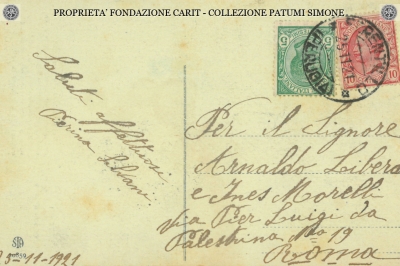 PROPRIETA' FONDAZIONE CARIT - COLLEZIONE PATUMI SIMONE
Saluti affettuosi
Pierina
Per il Signore
Arnaldo Libera
e Ines Morelli
Via Pier Luigi da
Palestrina No 19
Roma
-11-1921
(PERUGIA)
5
10